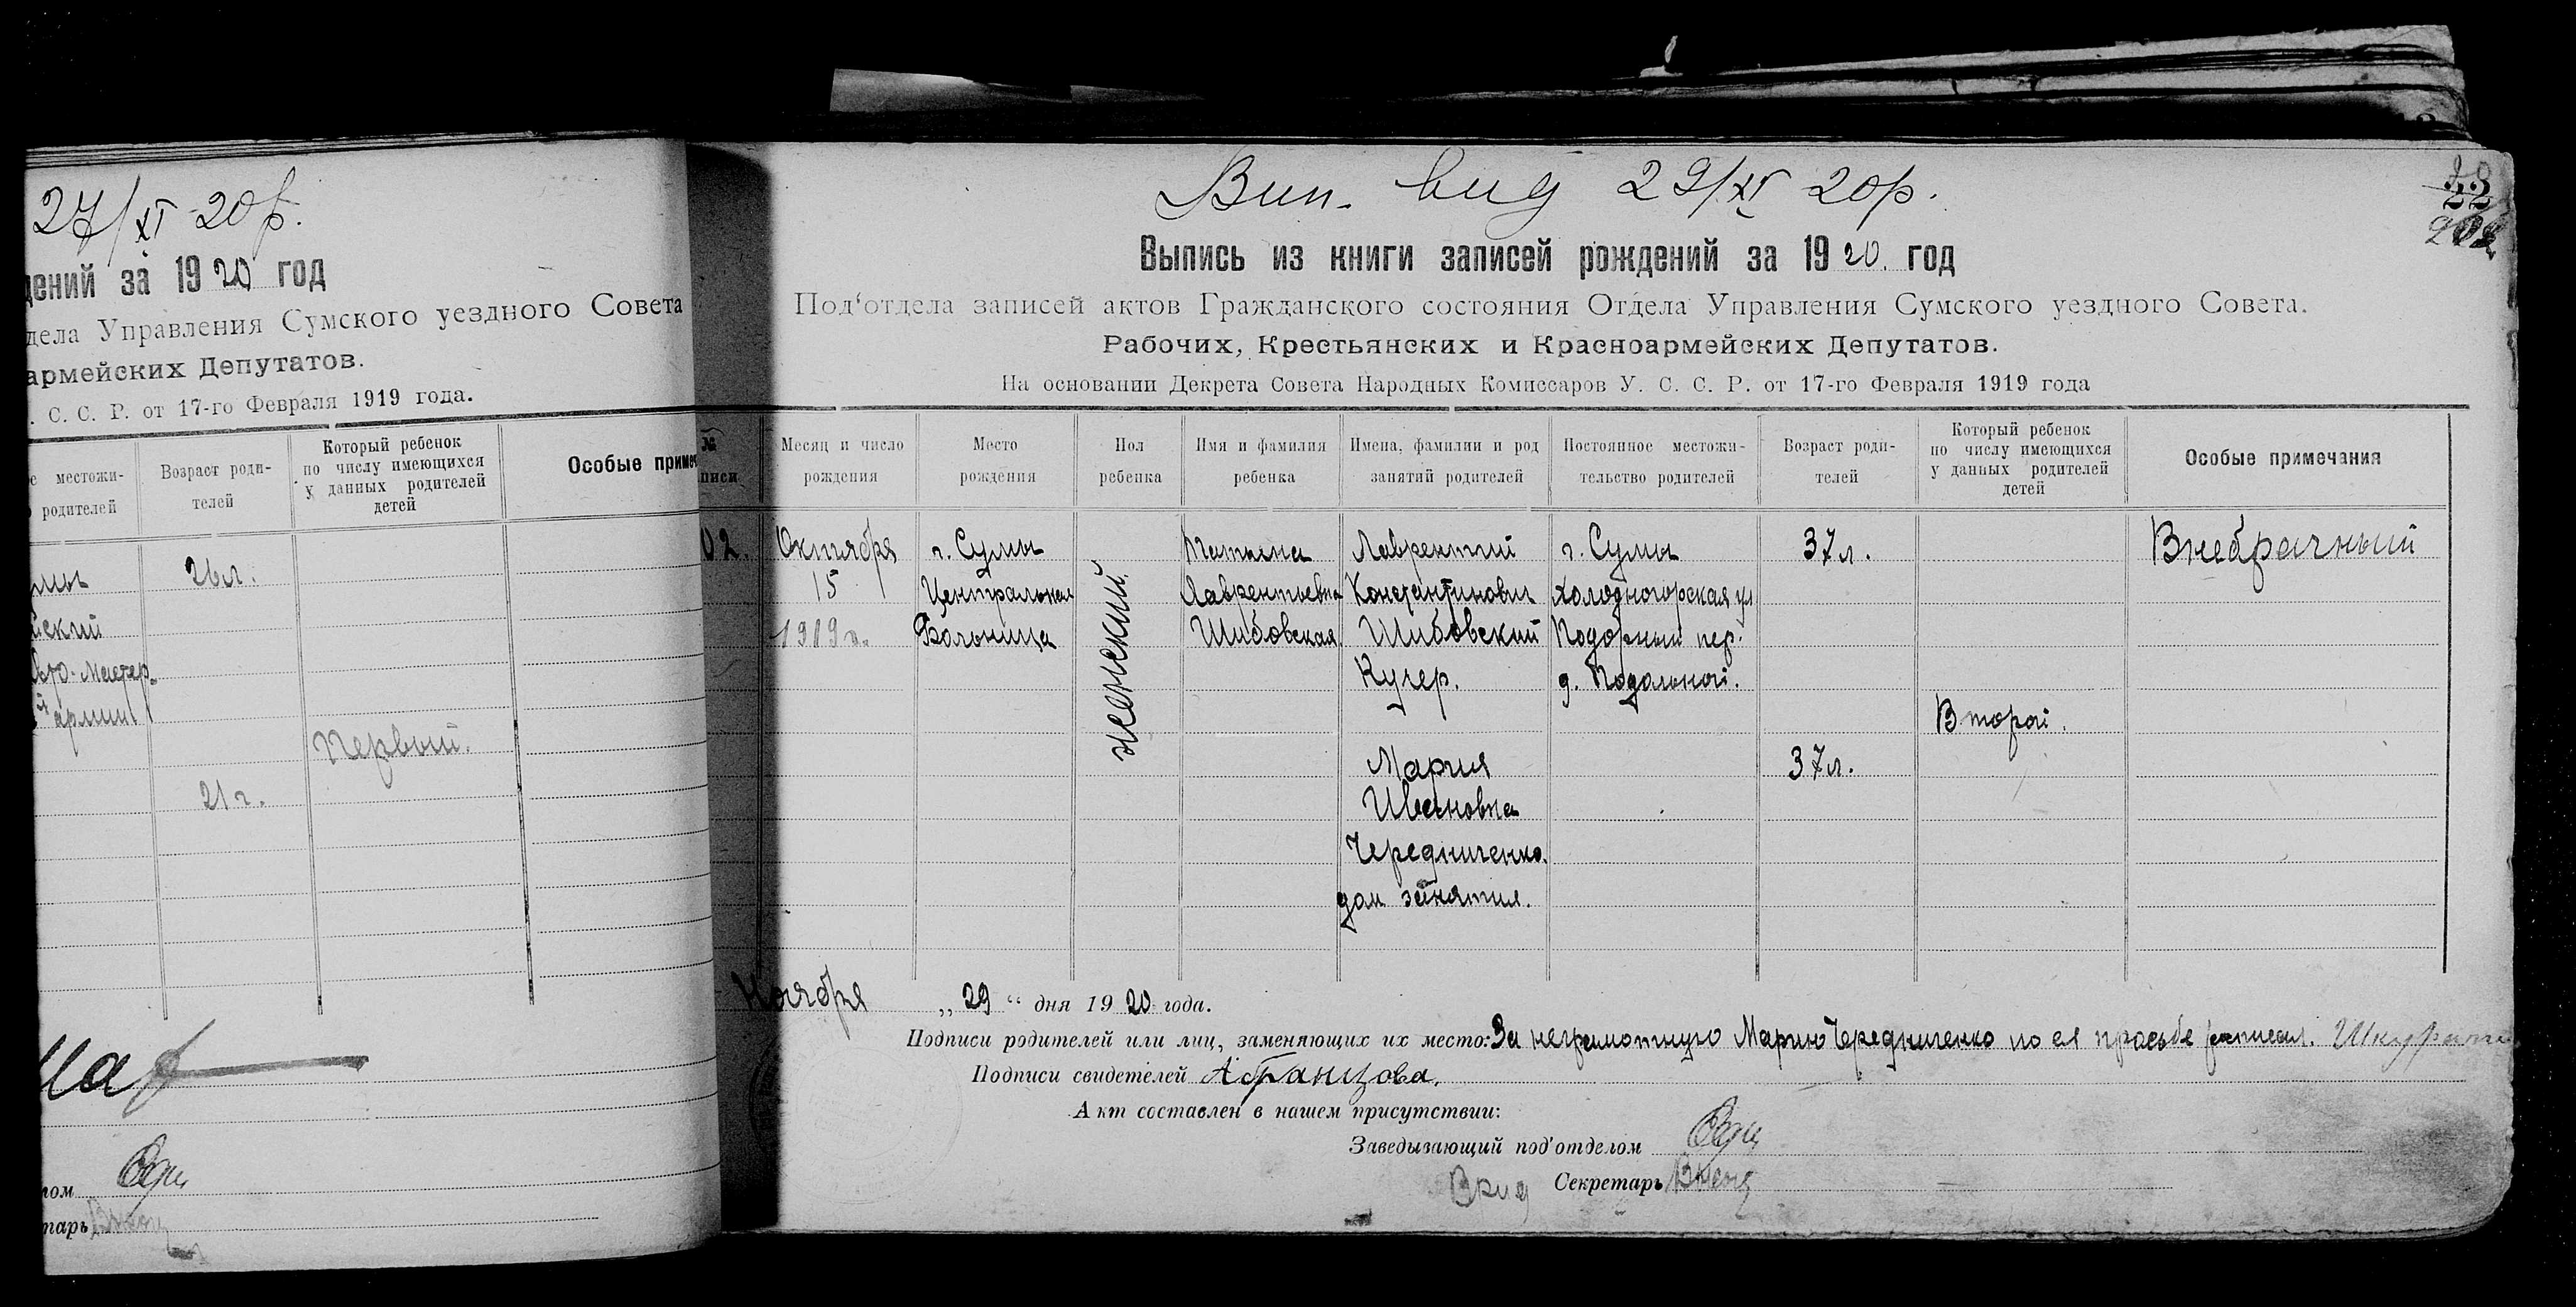 27/XI 20р.
дений за 1920 год
дела Управления Сумского уездного Совета
армейских Депутатов.
. С. С. Р. от 17-го Февраля 1919 года.
е местожи-
родителей
Возраст роди-
телей
Который ребенок
по числу имеющихся
у данных родителей
детей
Особые примеч
26л.
армии
Первый.
21 г.
лом
тарь
Вип. вид 29/XI 20р.
22
202
Выпись из книги записей рождений за 1920. год
Под‘отдела записей актов Гражданского состояния Отдела Управления Сумского уездного Совета.
Рабочих, Крестьянских и Красноармейских Депутатов.
На основании Декрета Совета Народных Комиссаров У. С. С. Р. от 17-го Февраля 1919 года
№
писи
Месяц и число
рождения
Место
рождения
Пол
ребенка
Имя и фамилия
ребенка
Имена, фамилии и род
занятий родителей
Постоянное местожи-
тельство родителей
Возраст роди-
телей
Который ребенок
по числу имеющихся
у данных родителей
детей
Особые примечания
02.
Октября
15
1919 г.
г. Сумы
Центральная
Больница
женский.
Татьяна
Лаврентьевна
Шибовская
Лаврентий
Константинович
Шибовский
Кучер.
Мария
Ивановна
Чередниченко.
дом. занятия.
г. Сумы
Холодногорская ул
пер.
д.
37л.
37л.
Второй.
Внебрачный
Ноября „ 29 “ дня 1920 года.
Подписи родителей или лиц, заменяющих их место: За неграмотную Марию Чередниченко по ея просьбе расписал.
Подписи свидетелей
Акт составлен в нашем присутствии:
Заведывающий под‘отделом
Врид Секретарь